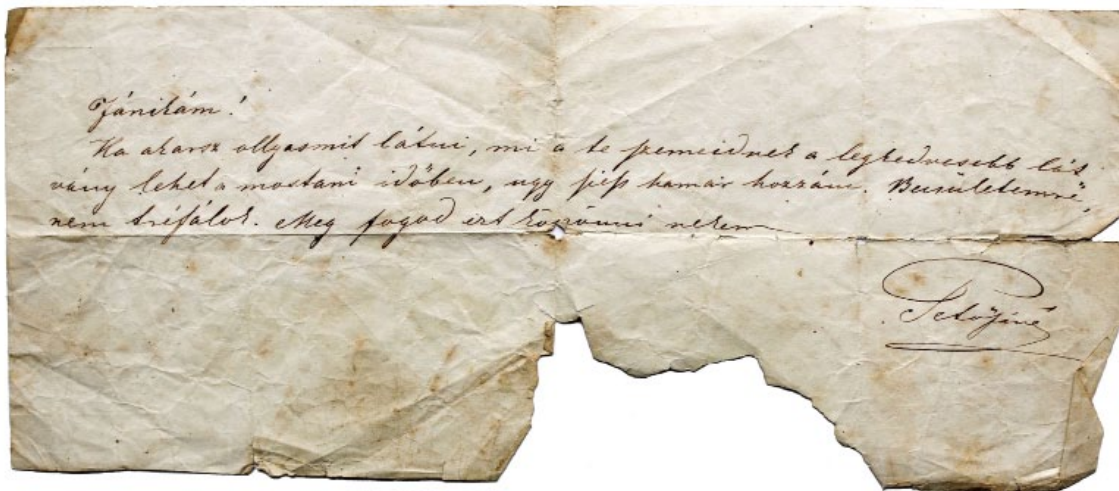 Jánikám!
Ha akarsz ollyasmit látni, mi a te szemeidnek a legkedvesebb lát
vány lehet a mostani időben, ugy siess hamar hozzám. Becsületemre,
nem tréfálok. Meg fogod ezt köszönni nekem
Petőfiné